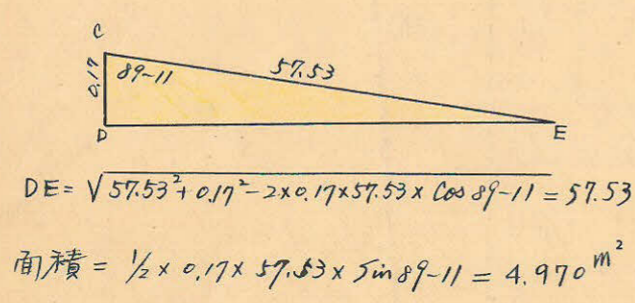 C
0.17
89-11
57.53
D
E
DE = √57.53²+0.17²-2×0.17×57.53×Cos 89-11 = 57.53
面積 = 1/2 × 0.17 × 57.53 × Sin 89-11 = 4.970 m²